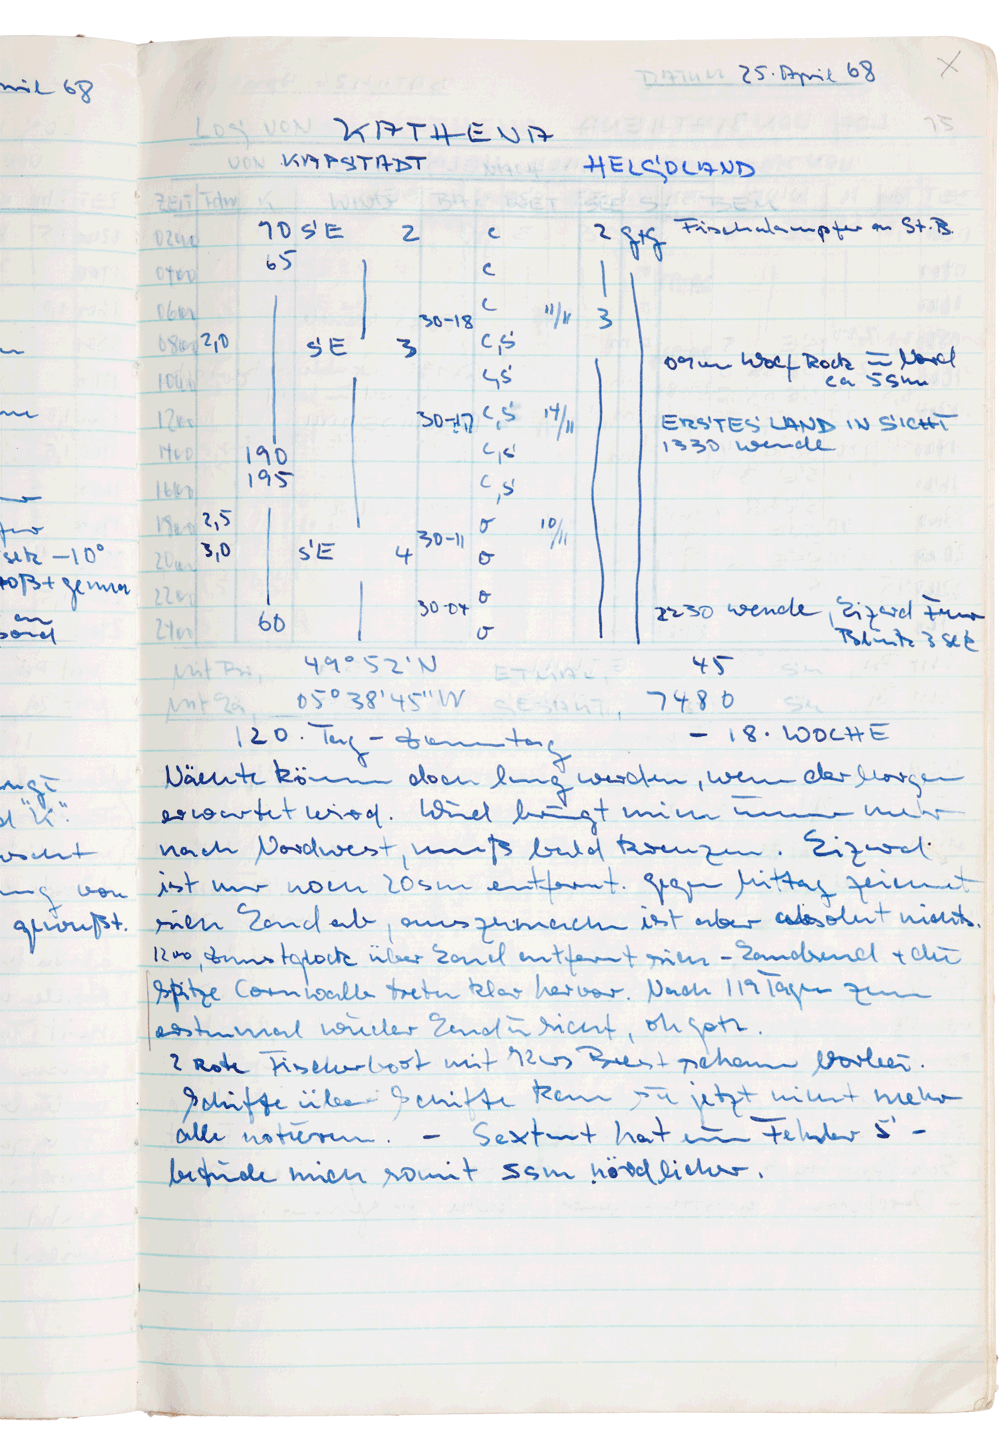 mil 68
DATUM 25. April 68
LOG VON KATHENA
VON KAPSTADT NACH HELGOLAND
ZEIT Fdm K WIND BA WET SEE
0200 70 SE 2 c 2 gtg Fischdampfer an St.B.
0400 65 c
0600 30-18 c 11/11 3
0800 2,0 SE 3 c,s 09 Wolf Rock in Nord
1000 c,s ca 5sm
1200 30-17 c,s 14/11 ERSTES LAND IN SICHT
1400 190 c,s 1330 wende
1600 195 c,s
1800 2,5 30-11 o 10/11
2000 3,0 SE 4 o
2200 30-04 o 2230 wende, Lizard Feuer
2400 60 o Blink 3 sek
Mit Br, 49°52'N ETMAL, 45 sm
Mit Lä, 05°38'45"W GESAMT, 7480 sm
120. Tag – Donnerstag – 18. WOCHE
Nächte können doch lang werden, wenn der Morgen
erwartet wird. Wind bringt mich immer mehr
nach Nordwest, muß bald kreuzen. Lizard
ist nur noch 20sm entfernt. Gegen Mittag zeichnet
sich Land ab, auszumachen ist aber absolut nichts.
1200, Dunstglocke über Land entfernt sich – Landsend + die
Spitze Cornwalls treten klar hervor. Nach 119 Tagen zum
erstenmal wieder Land in Sicht, oh gott.
2 Rote Fischerboot mit Kurs Brest ziehen vorbei.
Schiffe über Schiffe kann sie jetzt nicht mehr
alle notieren. – Sextant hat ein Fehler 5' –
befinde mich somit 5sm nördlicher.
sek –10°
gewußt.